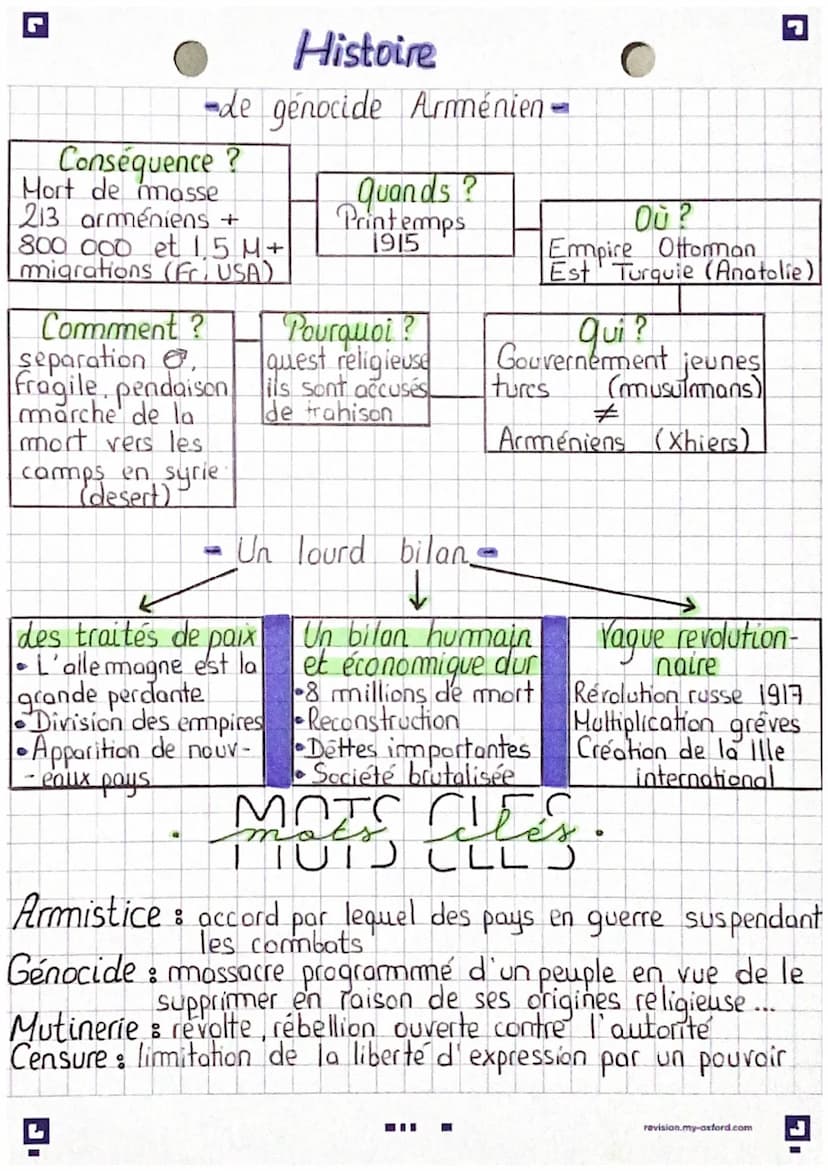 Histoire
-de génocide Arménien-
Conséquence ?
Mort de masse
213 arméniens +
800 000 et 1,5 M+
migrations (Fr, USA)
Quands ?
Printemps
1915
Où ?
Empire Ottoman
Est Turquie (Anatolie)
Comment ?
separation ♂,
fragile, pendaison
marche de la
mort vers les
camps en syrie
(desert)
Pourquoi ?
quest religieuse
ils sont accusés
de trahison
Qui ?
Gouvernement jeunes
turcs (musulmans)
≠
Arméniens (Xhiers)
- Un lourd bilan -
des traités de paix
• L'allemagne est la
grande perdante
• Division des empires
• Apparition de nouv-
- eaux pays
Un bilan humain
et économique dur
•8 millions de mort
•Reconstruction
•Dettes importantes
• Société brutalisée
Vague revolution-
naire
Révolution russe 1917
Multiplication grèves
Création de la IIIe
international
MOTS CLES
• mots clés •
Armistice : accord par lequel des pays en guerre suspendant
les combats
Génocide : massacre programmé d'un peuple en vue de le
supprimer en raison de ses origines religieuse ...
Mutinerie : révolte, rébellion ouverte contre l'autorité
Censure : limitation de la liberté d'expression par un pouvoir
revision.my-oxford.com